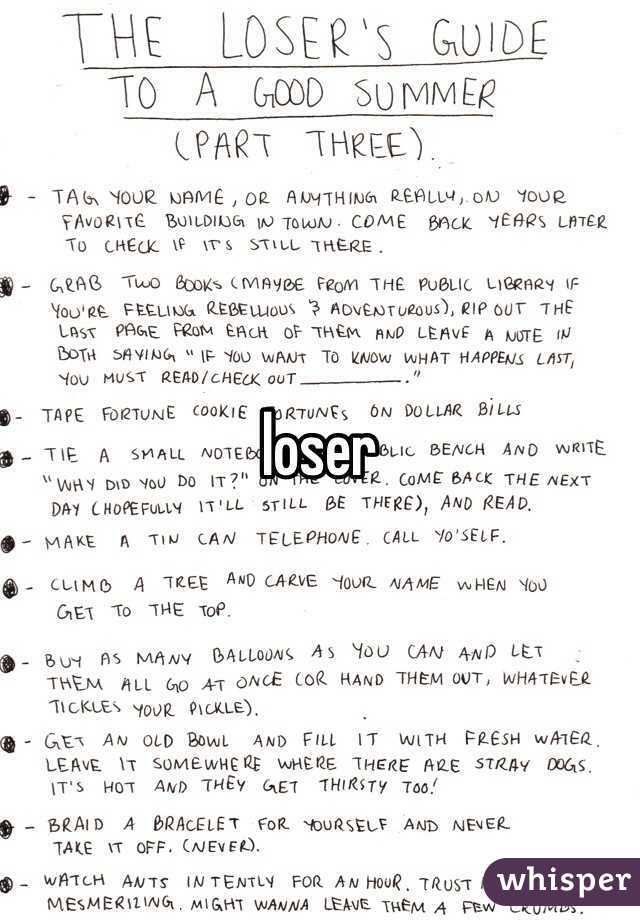 THE LOSER'S GUIDE
TO A GOOD SUMMER
(PART THREE).
- TAG YOUR NAME, OR ANYTHING REALLY, ON YOUR
FAVORITE BUILDING IN TOWN. COME BACK YEARS LATER
TO CHECK IF IT'S STILL THERE.
- GRAB TWO BOOKS (MAYBE FROM THE PUBLIC LIBRARY IF
YOU'RE FEELING REBELLIOUS & ADVENTUROUS), RIP OUT THE
LAST PAGE FROM EACH OF THEM AND LEAVE A NOTE IN
BOTH SAYING "IF YOU WANT TO KNOW WHAT HAPPENS LAST,
YOU MUST READ/CHECK OUT __________."
- TAPE FORTUNE COOKIE FORTUNES ON DOLLAR BILLS
loser
- TIE A SMALL BENCH AND WRITE
"WHY DID YOU DO IT?" ON THE COVER. COME BACK THE NEXT
DAY (HOPEFULLY IT'LL STILL BE THERE), AND READ.
- MAKE A TIN CAN TELEPHONE. CALL YO'SELF.
- CLIMB A TREE AND CARVE YOUR NAME WHEN YOU
GET TO THE TOP.
- BUY AS MANY BALLOONS AS YOU CAN AND LET
THEM ALL GO AT ONCE (OR HAND THEM OUT, WHATEVER
TICKLES YOUR PICKLE).
- GET AN OLD BOWL AND FILL IT WITH FRESH WATER.
LEAVE IT SOMEWHERE WHERE THERE ARE STRAY DOGS.
IT'S HOT AND THEY GET THIRSTY TOO!
- BRAID A BRACELET FOR YOURSELF AND NEVER
TAKE IT OFF. (NEVER).
- WATCH ANTS INTENTLY FOR AN HOUR. TRUST
MESMERIZING. MIGHT WANNA LEAVE THEM A FEW CRUMBS.
whisper